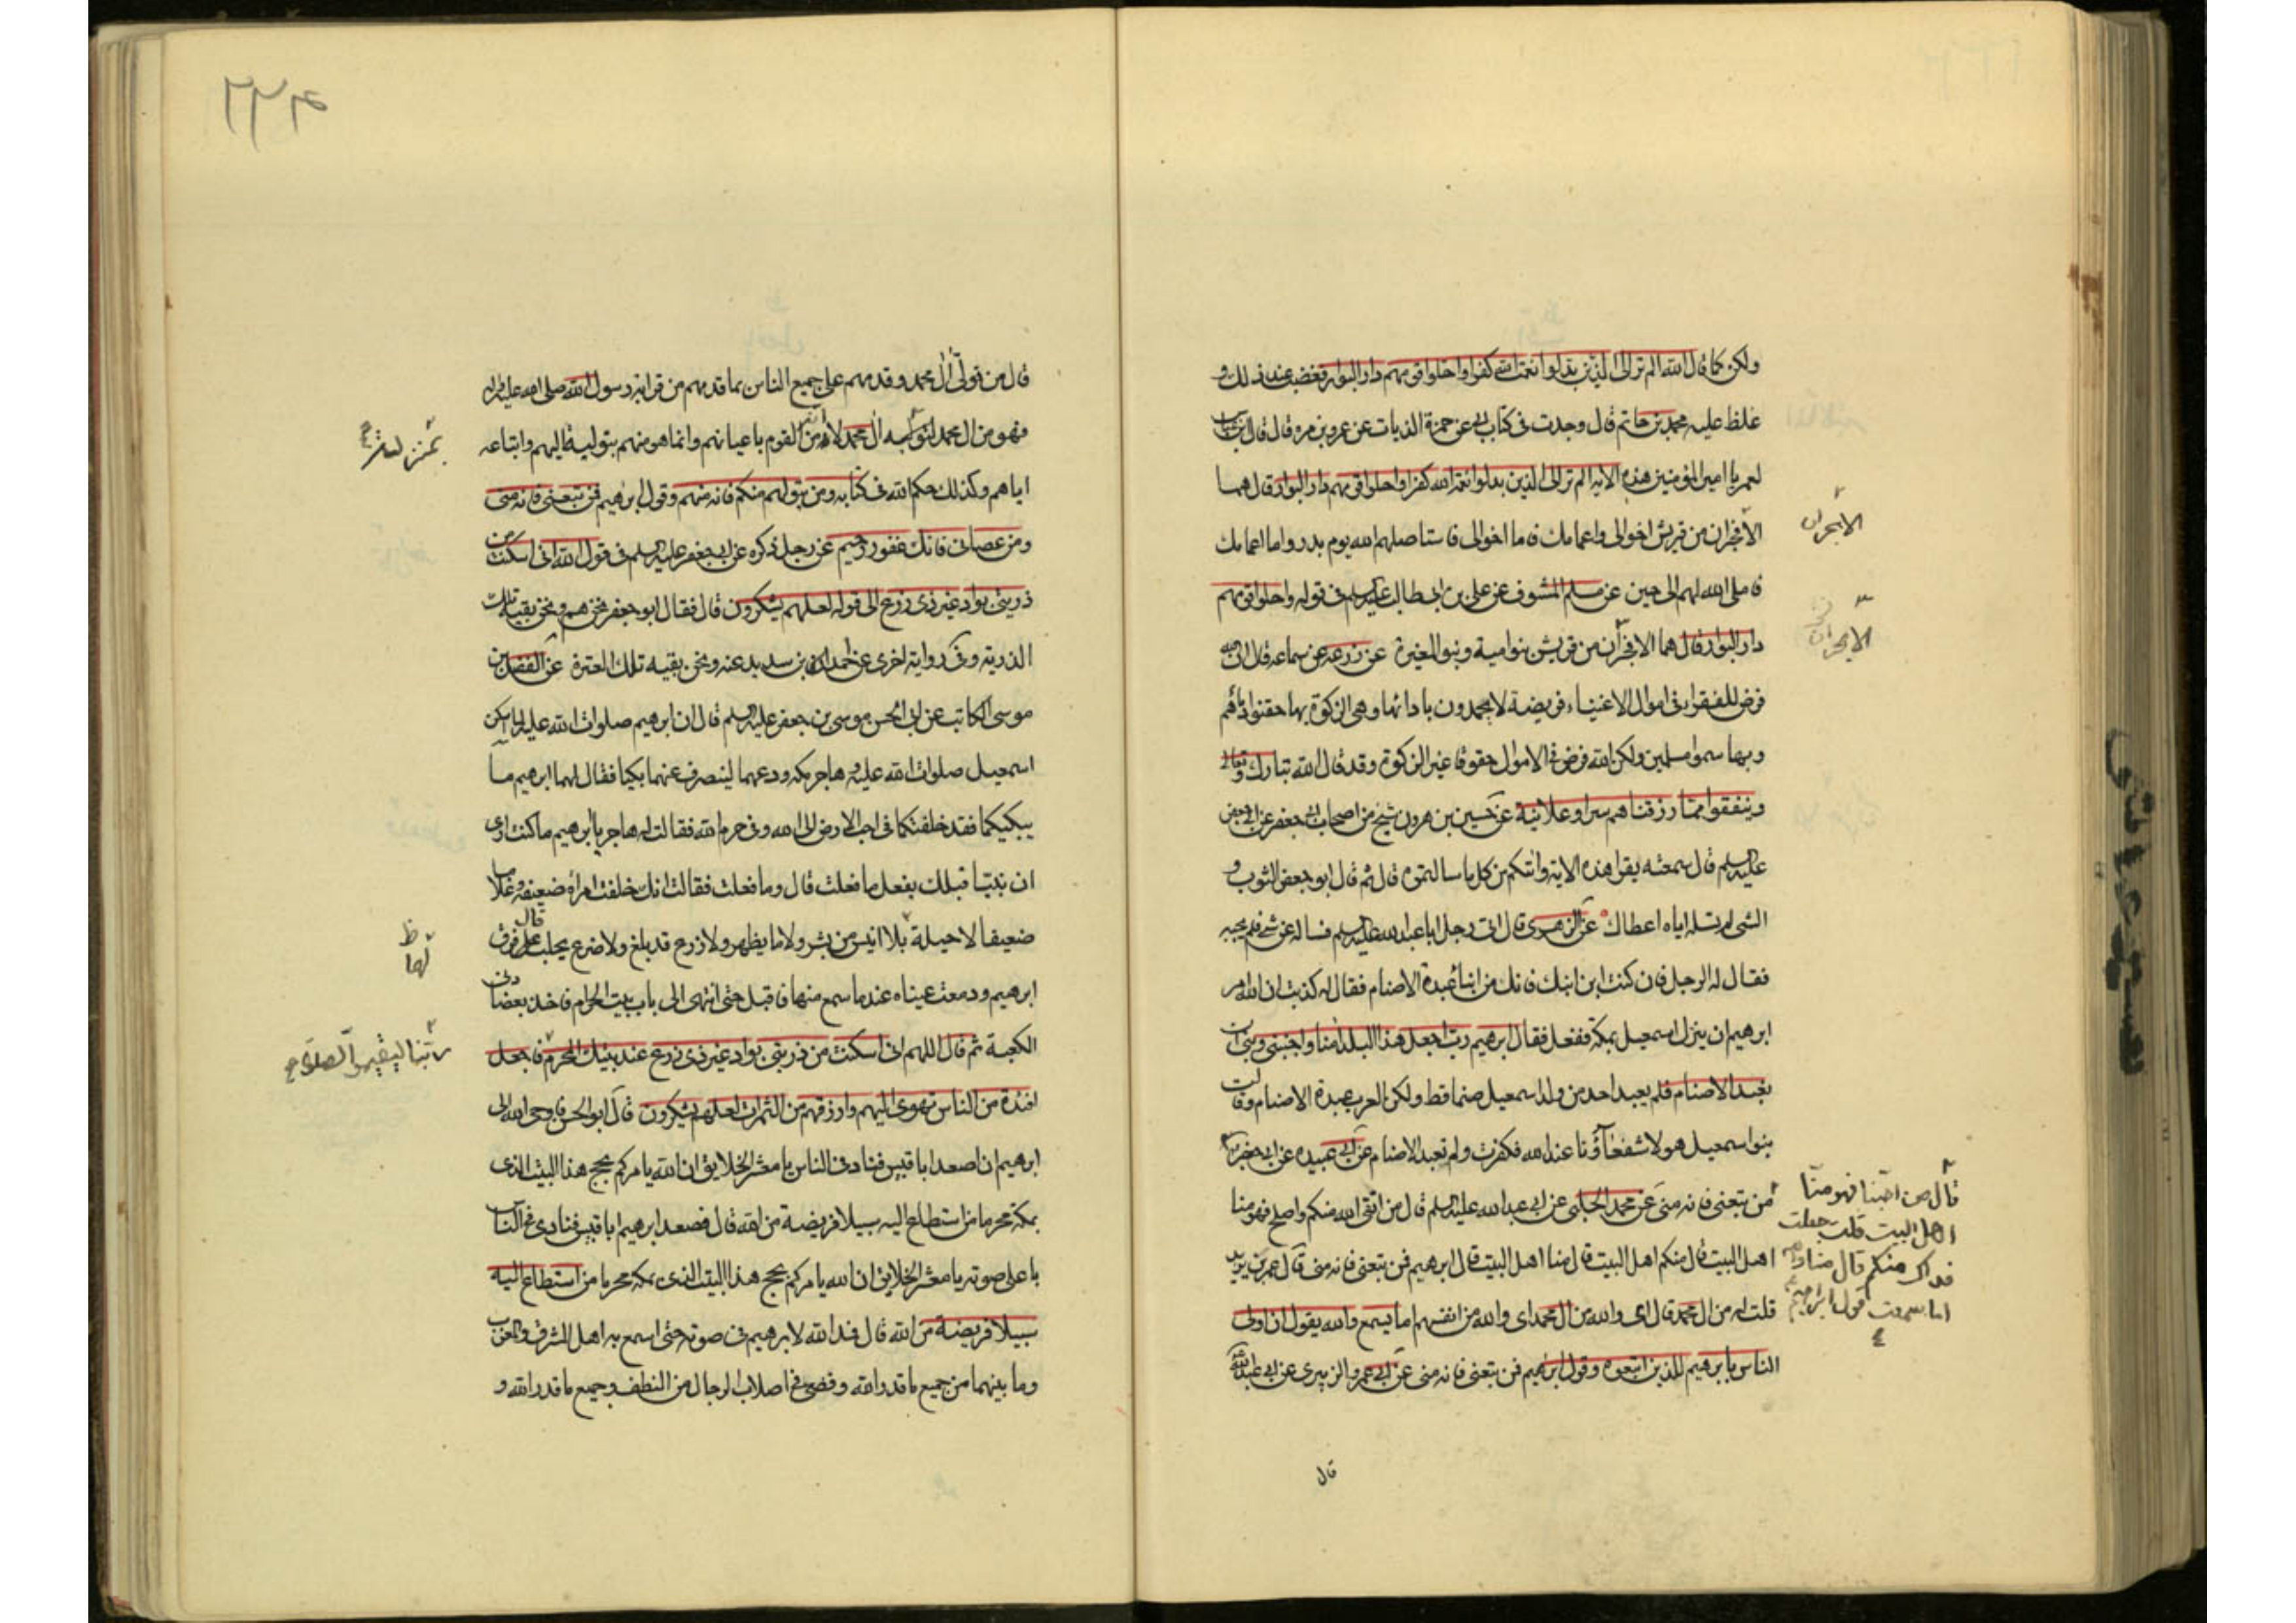 ولكن كما قال الله الم تر الى الذين بدلوا نعمت الله كفرا واحلوا قومهم دار البوار فغضب عند ذلك و
غلظ عليه محمد بن حاتم قال وجدت فى كتاب ابى عن حمزة الذيات عن عمرو بن مره قال قال ابن عباس
لعمر يا امير المؤمنين هذه الاية الم تر الى الذين بدلوا نعمة الله كفرا واحلوا قومهم دار البوار قال هما
الافجران من قريش اخوالى واعمامك فاما اخوالى فاستاصلهم الله يوم بدر واما اعمامك
فاملى الله لهم الى حين عن مسلم المشوف عن على بن ابى طالب عليه السلم فى قوله واحلوا قومهم
دار البوار قال هما الافجران من قريش بنو امية وبنو المغيرة عن زرعه عن سماعه قال ان الله
فرض للفقراء فى اموال الاغنياء فريضة لا يحمدون بادائها وهى الزكوة بها حقنوا دمائهم
وبها سموا مسلمين ولكن الله فرض فى الاموال حقوقا غير الزكوة وقد قال الله تبارك وتعالى
وينفقوا مما رزقناهم سرا وعلانية عن حسين بن هرون شيخ من اصحاب ابى جعفر عن ابى جعفر
عليه السلم قال سمعته يقرا هذه الاية واتيكم من كل ما سالتموه قال ثم قال ابو جعفر الثوب و
الشى لم تسله اياه اعطاك عن الزهرى قال اتى رجل ابا عبد الله عليه السلم فساله عن شى فلم يجبه
فقال له الرجل فان كنت ابن ابيك فانك من ابناء عبدة الاصنام فقال له كذبت ان الله امر
ابرهيم ان ينزل اسمعيل بمكة ففعل فقال ابرهيم رب اجعل هذا البلد امنا واجنبنى وبنى ان
نعبد الاصنام فلم يعبد احد من ولد اسمعيل صنما قط ولكن العرب عبدة الاصنام وقالت
بنو اسمعيل هولا شفعاؤنا عند الله فكفرت ولم تعبد الاصنام عن ابى عبيده عن ابى جعفر
من تبعنى فانه منى عن محمد الحلبى عن ابى عبد الله عليه السلم قال من اتقى الله منكم واصلح فهو منا
اهل البيت قال منكم اهل البيت قال منا اهل البيت قال ابرهيم فمن تبعنى فانه منى قال عمر بن يزيد
قلت له من ال محمد قال اى والله من ال محمد اى والله من انفسهم اما يسمع والله يقول ان اولى
الناس بابرهيم للذين اتبعوه وقول ابرهيم فمن تبعنى فانه منى عن ابى عمرو الزبيرى عن ابى عبد الله
قال
الابجران
الابجران
قال من احبنا فهو منا
اهل البيت قلت جعلت
فداك منكم قال منا والله
اما سمعت قول ابراهيم
قال من تولى ال محمد وقدمهم على جميع الناس بما قدمهم من قرابة رسول الله صلى الله عليه واله
فهو من ال محمد لتوليه ال محمد لا انه من القوم باعيانهم وانما هو منهم بتوليه اليهم واتباعه
اياهم وكذلك حكم الله فى كتابه ومن يتولهم منكم فانه منهم وقول ابرهيم فمن تبعنى فانه منى
ومن عصانى فانك غفور رحيم عن رجل ذكره عن ابى جعفر عليه السلم فى قول الله انى اسكنت من
ذريتى بواد غير ذى زرع الى قوله لعلهم يشكرون قال فقال ابو جعفر نحن هم ونحن بقية تلك
الذرية وفى رواية اخرى عن حمد بن سديد عنه ونحن بقيه تلك العترة عن الفضل بن
موسى الكاتب عن ابى الحسن موسى بن جعفر عليه السلم قال ان ابرهيم صلوات الله عليه لما اسكن
اسمعيل صلوات الله عليه وهاجر مكه ودعهما لينصرف عنهما بكيا فقال لهما ابرهيم ما
يبكيكما فقد خلفتكما فى احب الارض الى الله وفى حرم الله فقالت له هاجر يا ابرهيم ما كنت ارى
ان نبيا قبلك يفعل ما فعلت قال وما فعلت فقالت انك خلفت امراة ضعيفه وغلاما
ضعيفا لا حيلة بلا انيس من بشر ولا ما يظهر ولا زرع قد بلغ ولا ضرع يحلب قال فرق
ابرهيم ودمعت عيناه عند ما سمع منها فاقبل حتى انتهى الى باب بيت الحرام فاخذ بعضادتى
الكعبة ثم قال اللهم انى اسكنت من ذريتى بواد غير ذى زرع عند بيتك المحرم فاجعل
افئدة من الناس تهوى اليهم وارزقهم من الثمرات لعلهم يشكرون قال ابو الحسن فاوحى الله الى
ابرهيم ان اصعد ابا قبيس فناد فى الناس يا معشر الخلايق ان الله يامركم بحج هذا البيت الذى
بمكة محرما من استطاع اليه سبيلا فريضة من الله قال فصعد ابرهيم ابا قبيس فنادى فى الناس
باعلى صوته يا معشر الخلايق ان الله يامركم بحج هذا البيت الذى بمكه محرما من استطاع اليه
سبيلا فريضة من الله قال فمد الله لابرهيم فى صوته حتى اسمع به اهل المشرق والمغرب
وما بينهما من جميع ما قدر الله وقضى فى اصلاب الرجال من النطف وجميع ما قدر الله و
ظ
لهما
ربنا ليقيموا الصلوة